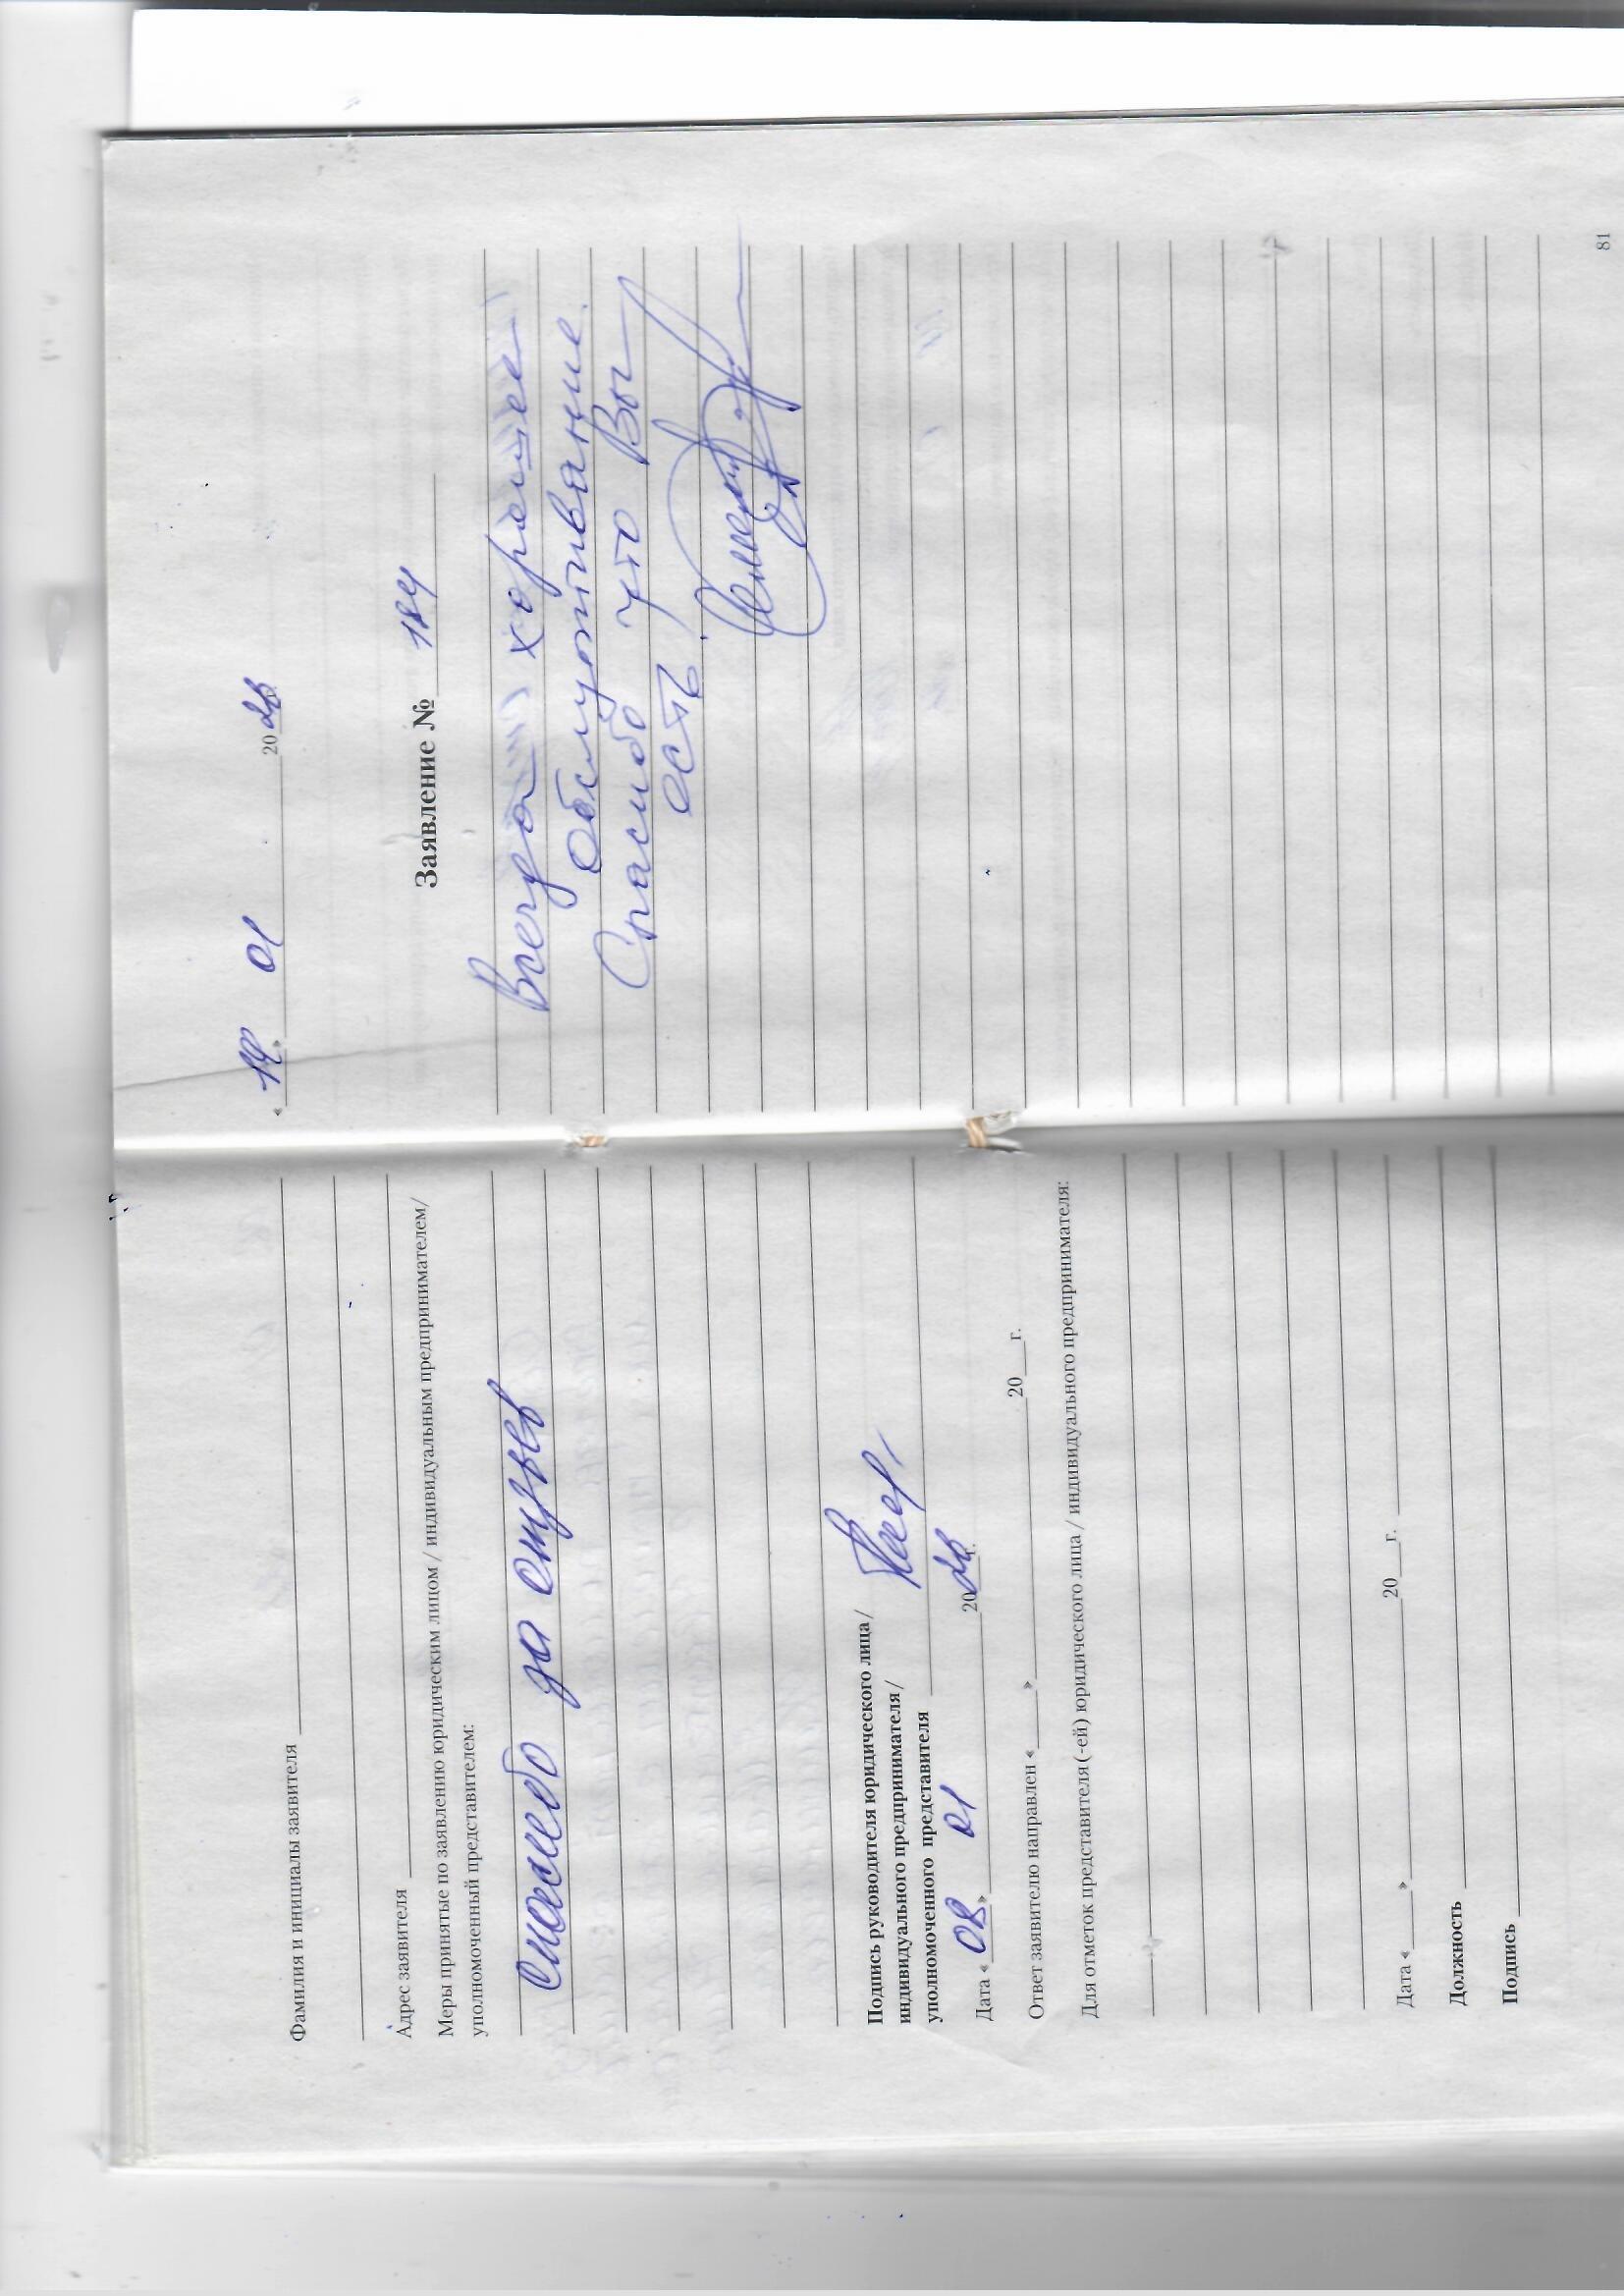 Фамилия и инициалы заявителя
Адрес заявителя
Меры принятые по заявлению юридическим лицом / индивидуальным предпринимателем/
уполномоченный представителем:
Спасибо за отзыв
Подпись руководителя юридического лица/
индивидуального предпринимателя/
уполномоченного представителя
Дата «08» 01 20 г.
Ответ заявителю направлен «___» 20___г.
Для отметок представителя (-ей) юридического лица / индивидуального предпринимателя:
Дата «___» 20___г.
Должность
Подпись
« » 01 20
Заявление № 184
Всегда хорошее
обслуживание.
Спасибо что Вы
есть.
81